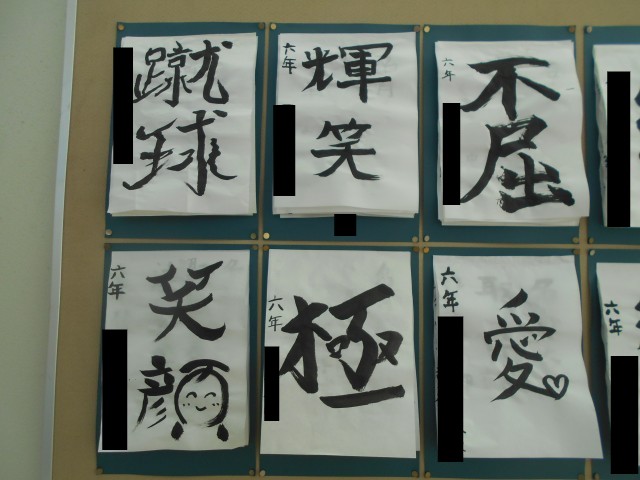 蹴球
六年
輝笑
六年
不屈
六年
笑顔
六年
極
六年
愛
六年
六年